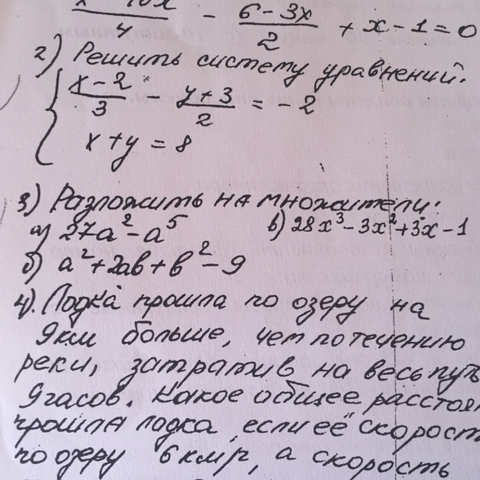 6 - 3x / 2 + x - 1 = 0
2) Решить систему уравнений.
{ x - 2 / 3 - y + 3 / 2 = -2
x + y = 8
3) Разложить на множители:
а) 27a² - a⁵ в) 28x³ - 3x² + 3x - 1
б) a² + 2ab + b² - 9
4). Лодка прошла по озеру на
9км больше, чем по течению
реки, затратив на весь путь
9 часов. Какое общее
прошла лодка, если её
по озеру 6 км/ч, а скорость